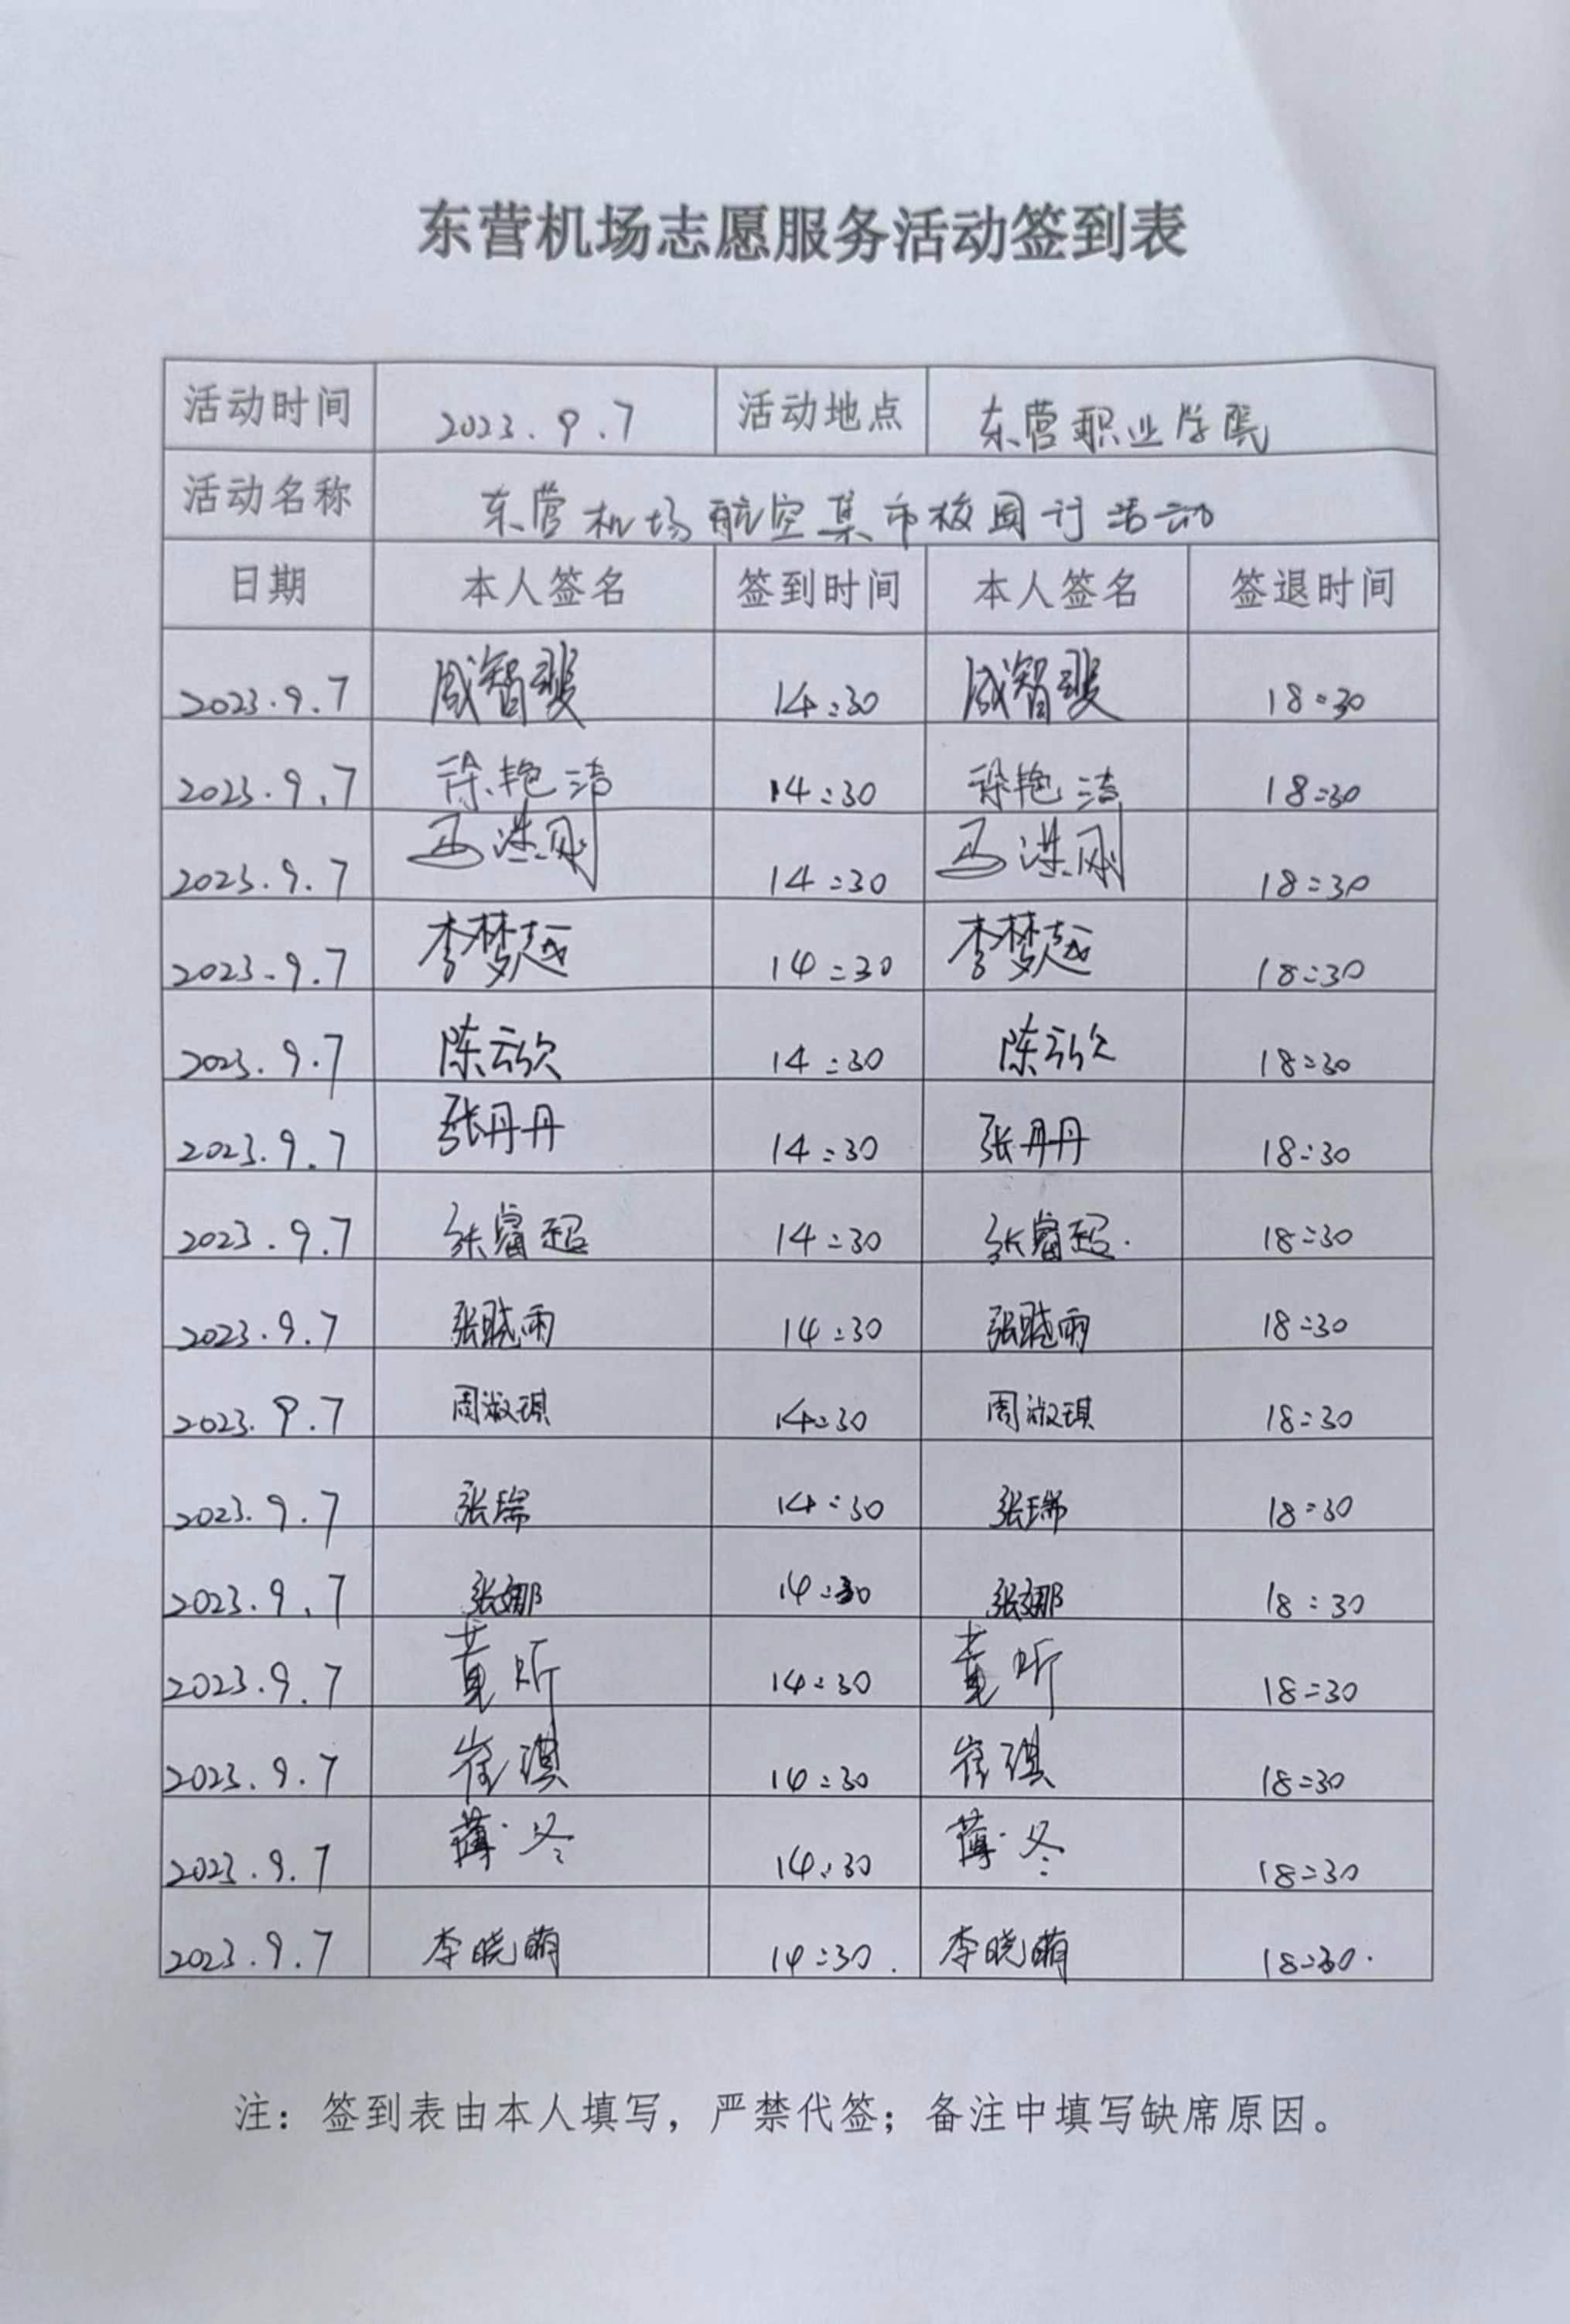 东营机场志愿服务活动签到表
活动时间 2023.9.7 活动地点 东营职业学院
活动名称 东营机场航空集市校园行活动
日期 本人签名 签到时间 本人签名 签退时间
2023.9.7 14:30 18:30
2023.9.7 徐艳洁 14:30 徐艳洁 18:30
2023.9.7 14:30 18:30
2023.9.7 李梦越 14:30 李梦越 18:30
2023.9.7 陈云欣 14:30 陈云欣 18:30
2023.9.7 张丹丹 14:30 张丹丹 18:30
2023.9.7 张睿超 14:30 张睿超. 18:30
2023.9.7 张晓雨 14:30 张晓雨 18:30
2023.9.7 周淑琪 14:30 周淑琪 18:30
2023.9.7 张瑞 14:30 张瑞 18:30
2023.9.7 张娜 14:30 张娜 18:30
2023.9.7 黄昕 14:30 黄昕 18:30
2023.9.7 崔琪 14:30 崔琪 18:30
2023.9.7 薄冬 14:30 薄冬 18:30
2023.9.7 李晓萌 14:30. 李晓萌 18:30.
注：签到表由本人填写，严禁代签；备注中填写缺席原因。